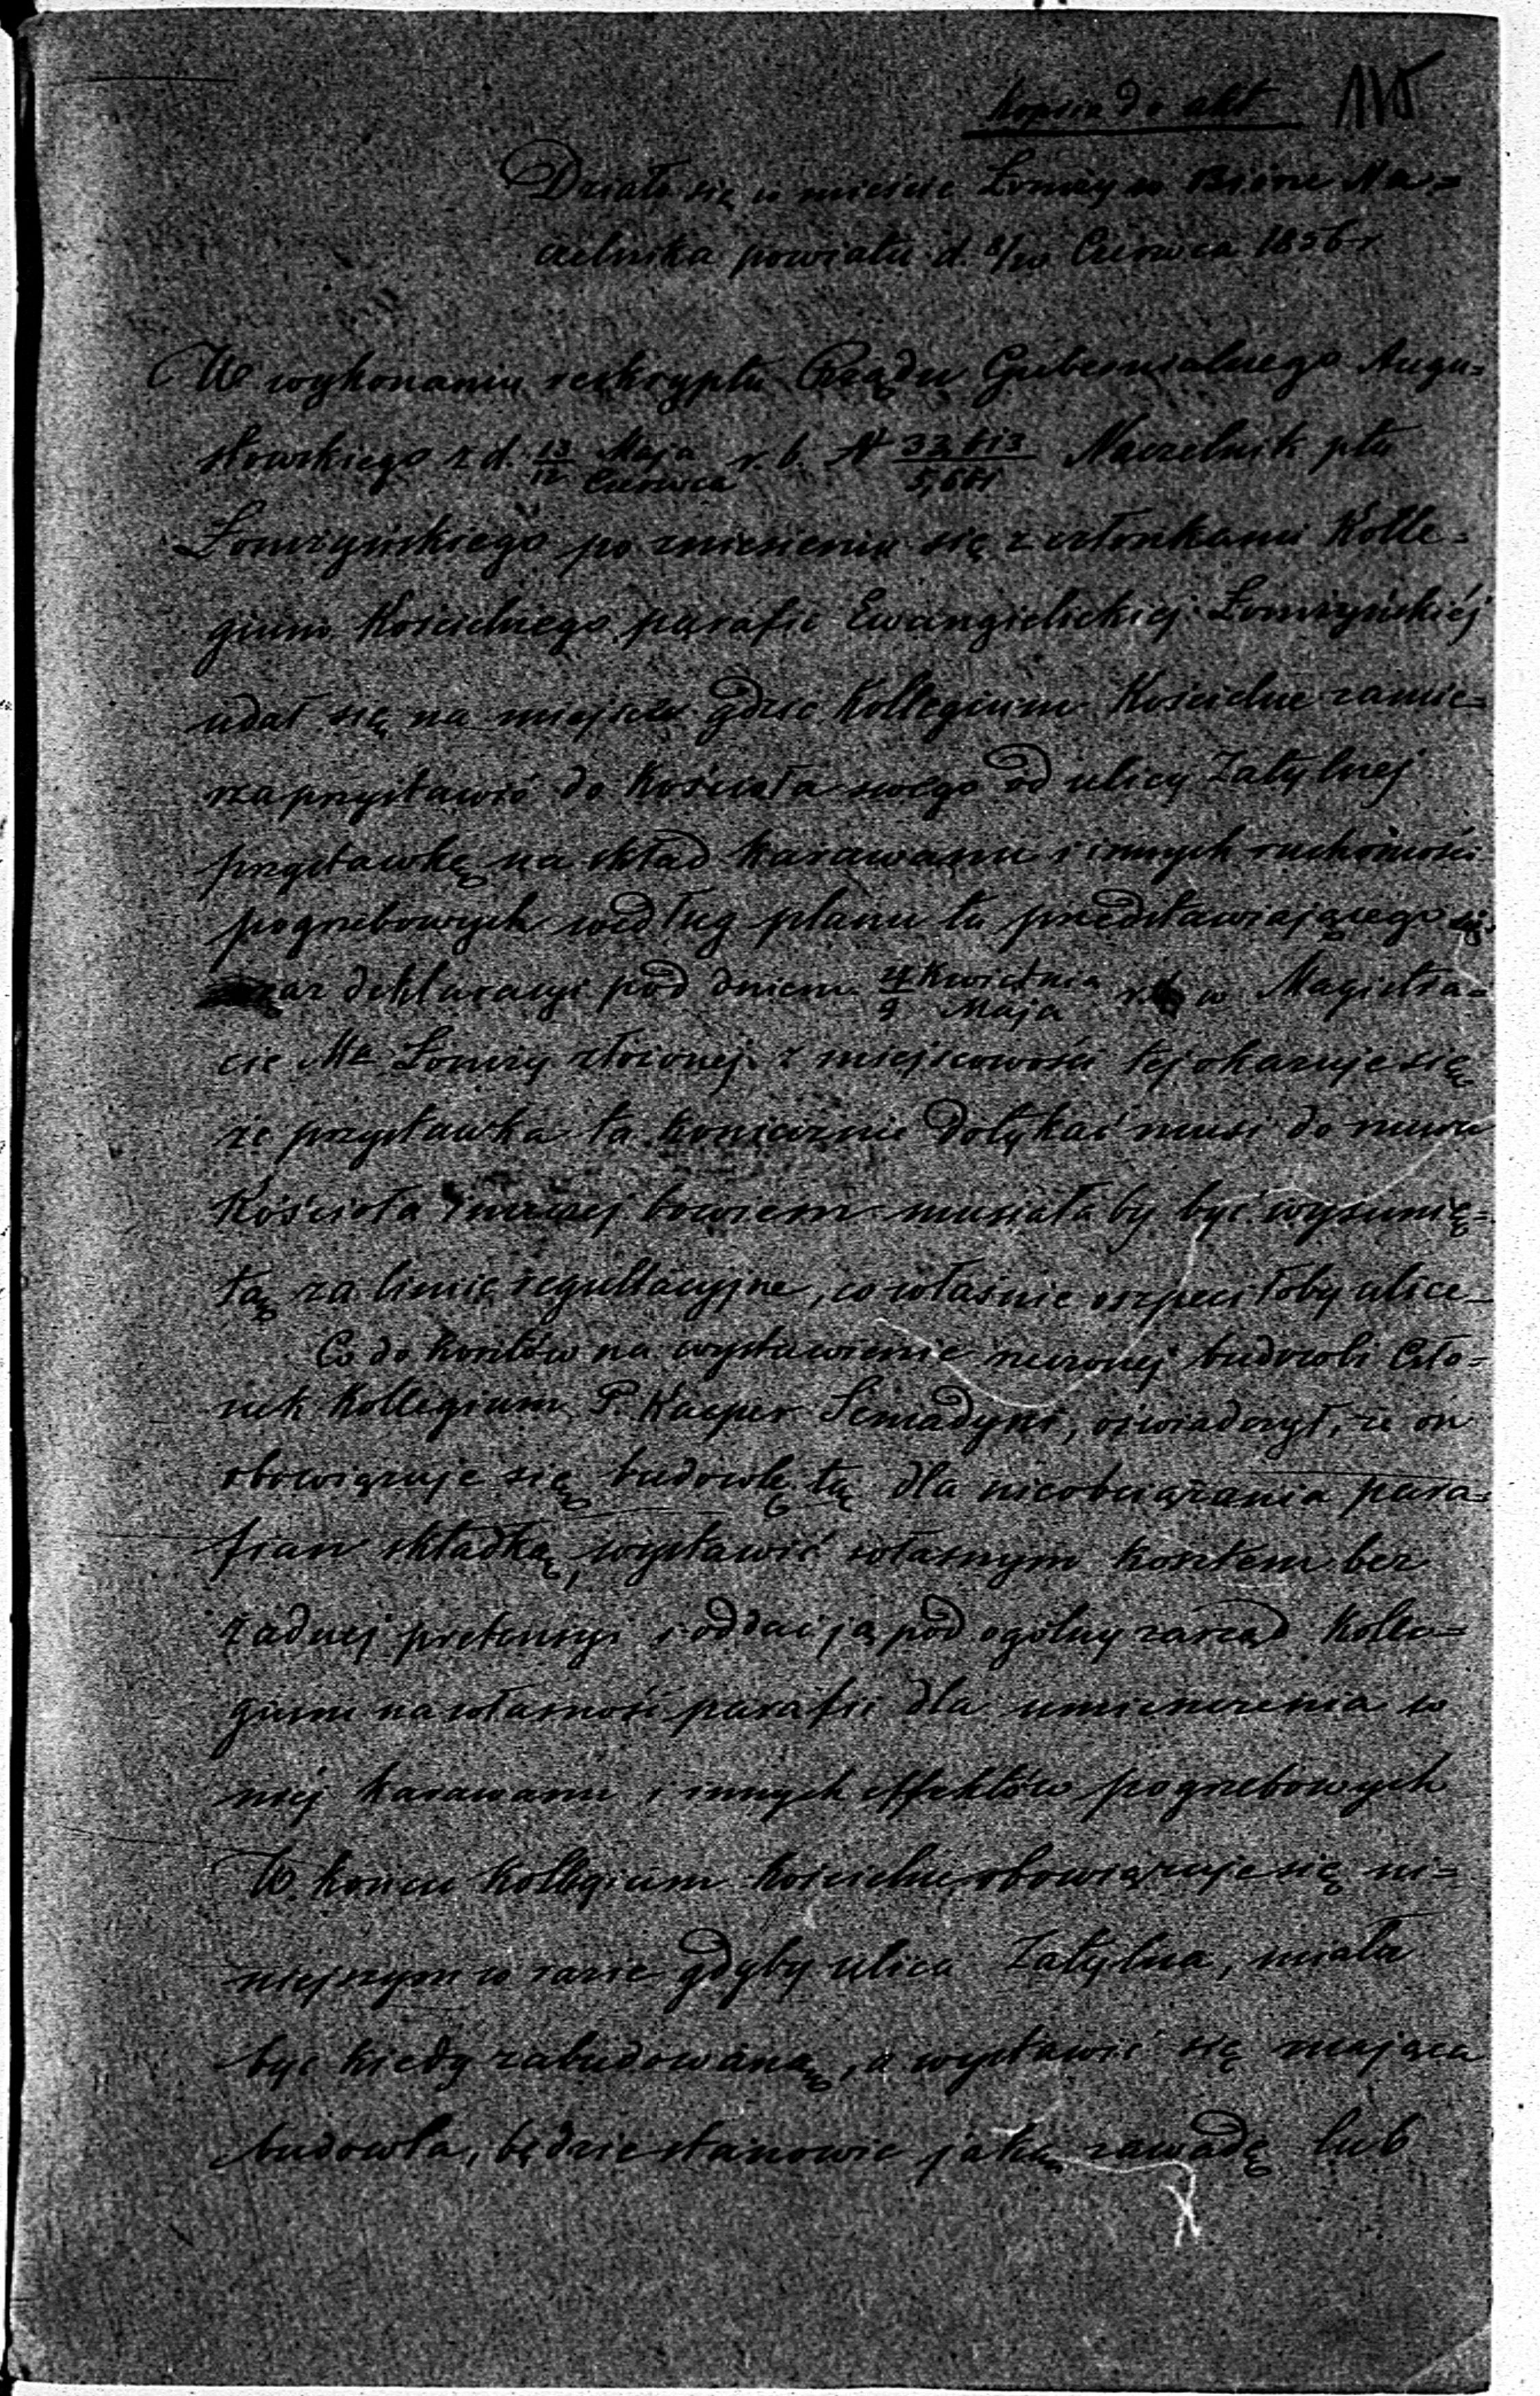 Kopia do akt 115
Działo się w mieście Łomży w Biórze Na=
czelnika powiatu d. 8/20 Czerwca 1856 r
W wykonaniu reskryptu Rządu Gubernialnego Augu=
stowskiego z d. 13/12 Maja/Czerwca r. b. N Naczelnik ptu
Łomżyńskiego po zniesieniu się z członkami Kolle=
gium Kościelnego parafii Ewangielickiej Łomżyńskiéj
udał się na miejsce gdzie Kollegium Kościelne zamie=
rza przystawić do Kościoła swego od ulicy Zatylnej
przystawkę na skład karawanu i innych ruchomości
pogrzebowych według planu tu przedstawiającego się
oraz deklaracyi pod dniem Kwietnia/Maja r. b w Magistra=
cie Mta Łomży złożonej. z miejscowości tej okazuje się
że przystawka ta koniecznie dotykać musi do muru
Kościoła inaczej bowiem musiała by być wysunię=
tą za linię regullacyjne, co właśnie oszpeciłoby ulice_
Co do kosztów na wystawienie rzeczonej budowli Czło=
nek Kollegium P. Kacper Semadyni, oświadczył, że on
obowiązuje się budowlę tę dla nieobciążania para=
fian składką, wystawić własnym kosztem bez
żadnej pretensyi i oddać ją pod ogólny zarząd Kolle=
gium na własność parafii dla umieszczenia w
niéj karawanu i innych effektów pogrzebowych
W końcu Kollegium Kościelne obowiązuje się ni=
niejszym w razie gdyby ulica Zatylna, miała
być kiedy zabudowaną, a wystawić się mająca
budowla, będzie stanowić jaką zawadę lub